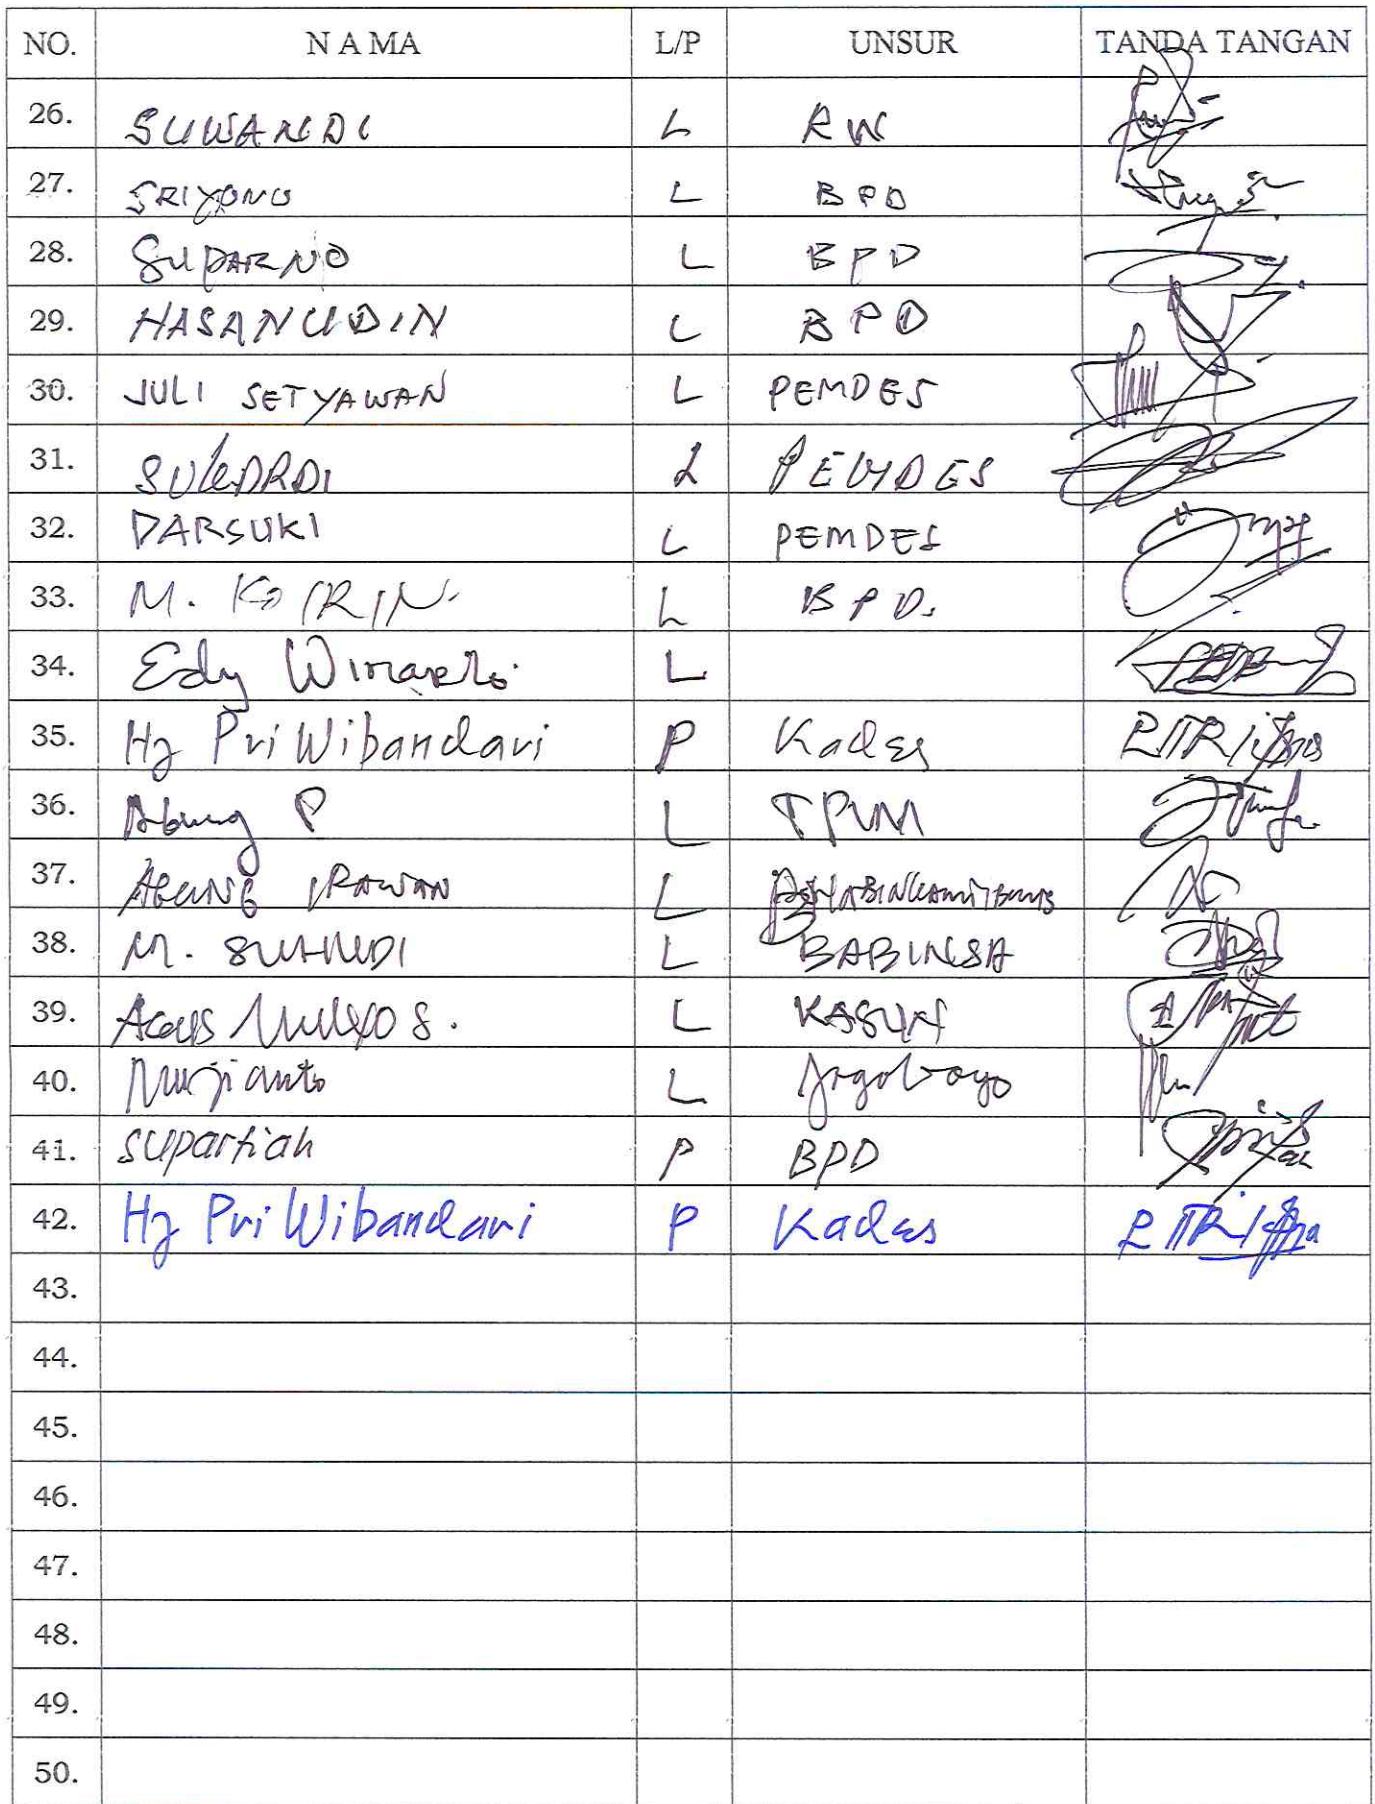 NO. N A M A L/P UNSUR TANDA TANGAN
26. SUWANDI L RW
27. SRIYONO L BPD
28. SUPARNO L BPD
29. HASANUDIN L BPD
30. JULI SETYAWAN L PEMDES
31. SUKARDI L PEMDES
32. DARSUKI L PEMDES
33. M. KOIRIN. L BPD.
34. Edy Winarto. L
35. Hj Pri Wibandari P Kades
36. P L
37. AGUNG IRAWAN L BHABINKAMTIBMAS
38. M. SUHUDI L BABINSA
39. AGUS MULYO S. L KASUN
40. Murjianto L Jogoboyo
41. Supartiah P BPD
42. Hj Pri Wibandari P Kades
43.
44.
45.
46.
47.
48.
49.
50.